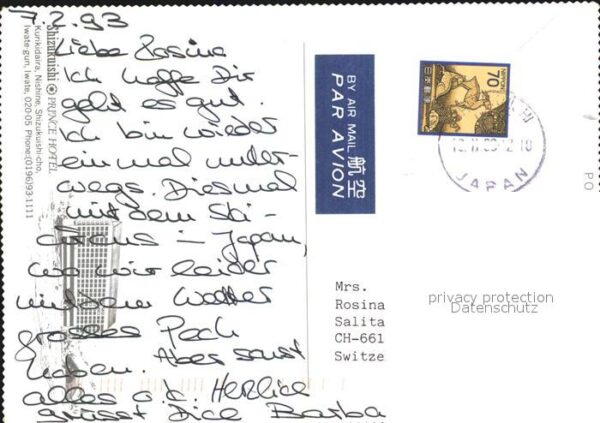 7.2.93
Liebe Rosina
Ich hoffe Dir
geht es gut.
Ich bin wieder
einmal unter-
wegs. Diesmal
mit dem Ski-
Circus in Japan,
wo wir leider
mit dem Wetter
grosses Pech
haben. Aber sonst
alles o.k. Herzlich
grüsst Dich Barba
Shizukuishi PRINCE HOTEL
Kunkidaira, Nishine, Shizukuishi-cho,
Iwate-gun, Iwate, 020-05 Phone:(0196)93-1111
BY AIR MAIL 航空
PAR AVION
日本郵便
NIPPON
70
JAPAN
PO
Mrs.
Rosina
Salita
CH-661
Switze
privacy protection
Datenschutz